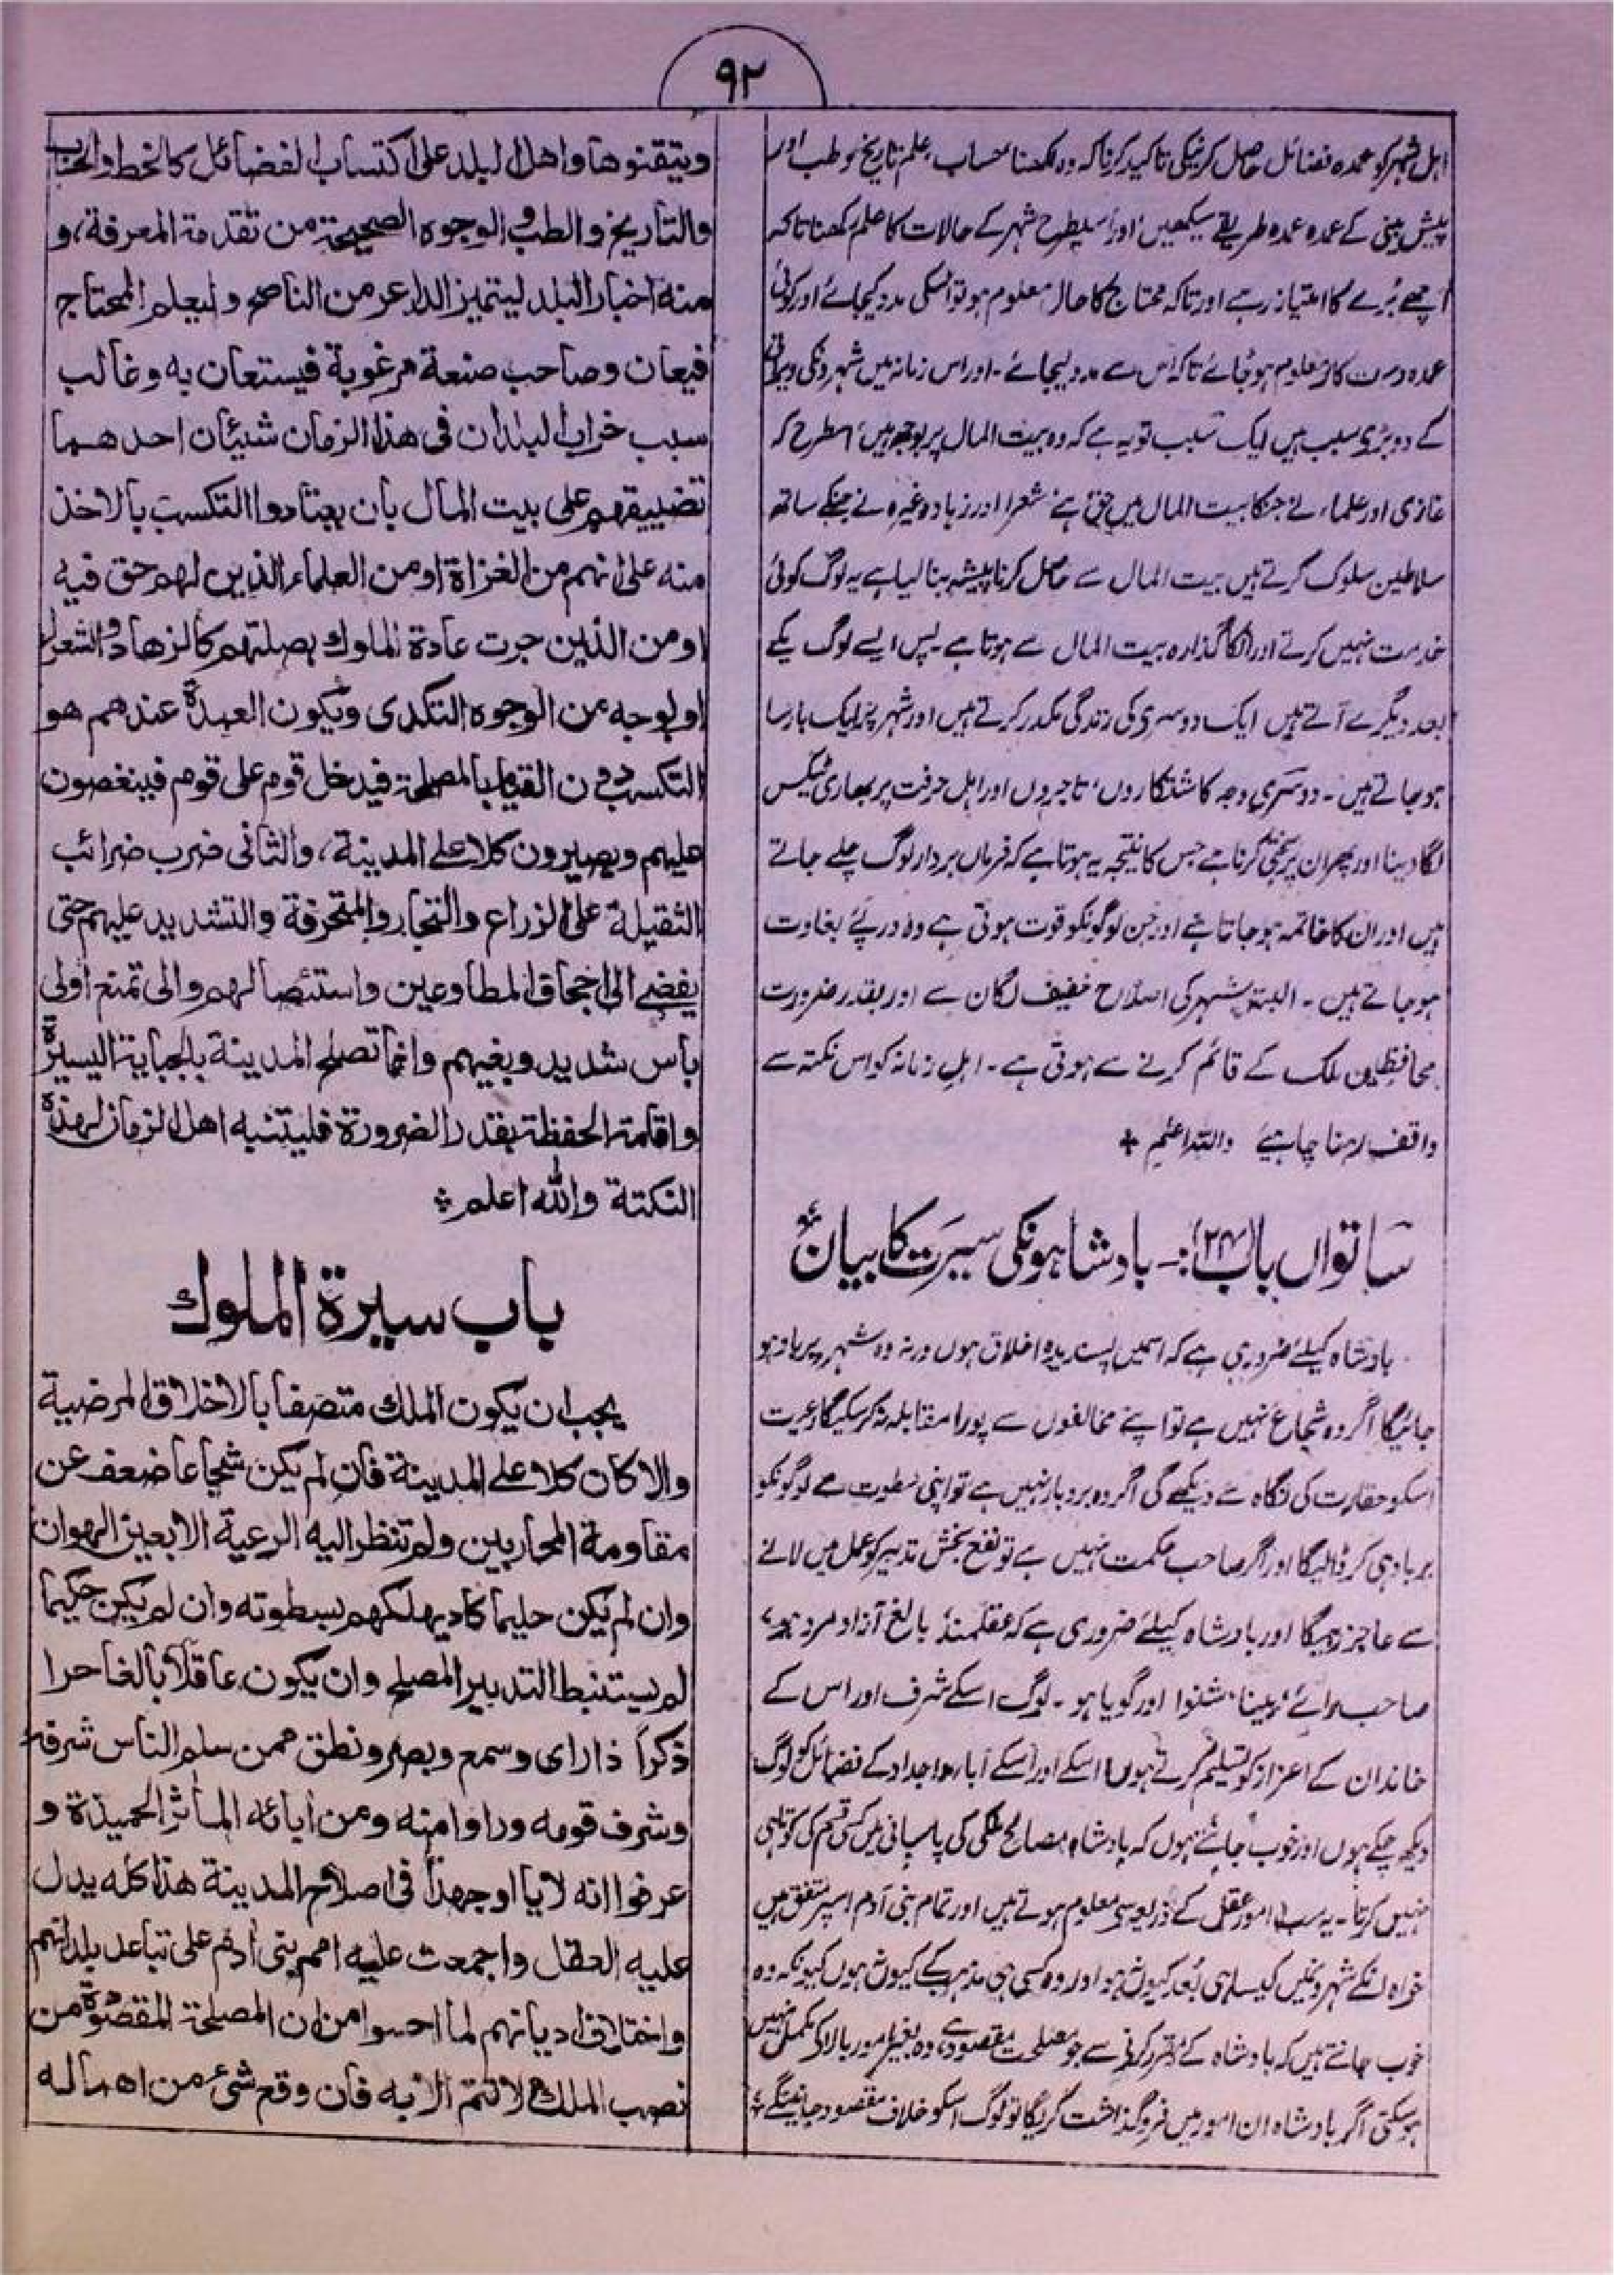 ۹۲
اہل شہر کو عمدہ فضائل حاصل کرنیکی تاکید کرنا کہ وہ لکھنا، حساب، علم تاریخ و طب اور
پیش بینی کے عمدہ عمدہ طریقے سیکھیں، اور اسیطرح شہر کے حالات کا علم رکھنا تاکہ
اچھے بُرے کا امتیاز رہے اور تاکہ محتاج کا حال معلوم ہو تو اسکی مدد کیجائے اور کوئی
عمدہ دست کار معلوم ہو جائے تاکہ اس سے مدد لیجائے۔ اور اس زمانہ میں شہرونکی ویرانی
کے دو بڑی سبب ہیں ایک سبب تو یہ ہے کہ وہ بیت المال پر بوجھ ہیں، اسطرح کہ
غازی اور علماء نے جنکا بیت المال میں حق ہے، شعرا اور زہاد وغیرہ نے جنکے ساتھ
سلاطین سلوک کرتے ہیں بیت المال سے حاصل کرنا پیشہ بنا لیا ہے یہ لوگ کوئی
خدمت نہیں کرتے اور انکا گذارہ بیت المال سے ہوتا ہے۔ پس ایسے لوگ یکے
بعد دیگرے آتے ہیں ایک دوسری کی زندگی مکدر کرتے ہیں اور شہر پر ایک بار سا
ہو جاتے ہیں۔ دوسری وجہ کاشتکاروں، تاجروں اور اہل حرفت پر بھاری ٹیکس
لگا دینا اور پھر ان پر سختی کرنا ہے جس کا نتیجہ یہ ہوتا ہے کہ فرماں بردار لوگ چلے جاتے
ہیں اور ان کا خاتمہ ہو جاتا ہے اور جن لوگونکو قوت ہوتی ہے وہ درپئے بغاوت
ہو جاتے ہیں۔ البتہ شہر کی اصلاح خفیف لگان سے اور بقدر ضرورت
محافظین ملک کے قائم کرنے سے ہوتی ہے۔ اہل زمانہ کو اس نکتہ سے
واقف رہنا چاہیئے واللہ اعلم +
ساتواں باب (۲۴): ۔ بادشاہونکی سیرت کا بیان
بادشاہ کیلئے ضروری ہے کہ اسمیں پسندیدہ اخلاق ہوں ورنہ وہ شہر پر بار ہو
جائیگا اگر وہ شجاع نہیں ہے تو اپنے مخالفوں سے پورا مقابلہ نہ کر سکیگا رعیت
اسکو حقارت کی نگاہ سے دیکھے گی اگر وہ بردبار نہیں ہے تو اپنی سطوت سے لوگونکو
برباد ہی کر ڈالیگا اور اگر صاحب حکمت نہیں ہے تو نفع بخش تدبیر کو عمل میں لانے
سے عاجز رہیگا اور بادشاہ کیلئے ضروری ہے کہ عقلمند، بالغ آزاد مرد ہو،
صاحب رائے، بینا، شنوا اور گویا ہو۔ لوگ اسکے شرف اور اس کے
خاندان کے اعزاز کو تسلیم کرتے ہوں، اسکے اور اسکے آباء و اجداد کے فضائل کو لوگ
دیکھ چکے ہوں اور خوب جانتے ہوں کہ بادشاہ مصالح ملکی کی پاسبانی میں کسی قسم کی کوتاہی
نہیں کرتا۔ یہ سب امور عقل کے ذریعہ سے معلوم ہوتے ہیں اور تمام بنی آدم اسپر متفق ہیں
خواہ انکے شہرونمیں کیسا ہی بُعد کیوں نہ ہو اور وہ کسی ہی مذہب کے کیوں نہ ہوں کیونکہ وہ
خوب جانتے ہیں کہ بادشاہ کے مقرر کرنے سے جو مصلحت مقصود ہے، وہ بغیر امور بالا کے مکمل نہیں
ہو سکتی اگر بادشاہ ان امور میں فروگذاشت کریگا تو لوگ اسکو خلاف مقصود جانینگے
ويتيقنوها واهل البلد على اكتساب الفضائل كالخط والحساب
والتأريخ والطب والوجوه الصحيحة من تقدمة المعرفة، و
منه اخبار البلد ليتميز الداعر من الناصح وليعلم المحتاج
فيعان وصاحب صنعة مرغوبة فيستعان به وغالب
سبب خراب البلدان فى هذا الزمان شيئان احدهما
تضييقهم على بيت المال بان يعتادوا التكسب بالاخذ
منه على انهم من الغزاة او من العلماء الذين لهم حق فيه
او من الذين جرت عادة الملوك بصلتهم كالزهاد والشعراء
او لوجه من الوجوه التكدى ويكون العهدة عندهم هو
التكسب دون القيام بالمصلحة فيدخل قوم على قوم فينغصون
عليهم ويصيرون كلا على المدينة، والثانى ضرب ضرائب
الثقيلة على الزراع والتجار والمتحرفة والتشديد عليهم حتى
يفضى الى اجحاف المطاوعين واستئصالهم والى تمنع اولى
بأس شديد وبغيهم وانما تصلح المدينة بالجباية اليسيرة
واقامة الحفظة بقدر الضرورة فليتنبه اهل الزمان لهذه
النكتة والله اعلم
باب سيرة الملوك
يجب ان يكون الملك متصفا بالاخلاق المرضية
والا كان كلا على المدينة فان لم يكن شجاعا ضعف عن
مقاومة المحاربين ولم تنظر اليه الرعية الا بعين الهوان
وان لم يكن حليما كاد يهلكهم بسطوته وان لم يكن حكيما
لم يستنبط التدبير المصلح وان يكون عاقلا بالغا حرا
ذكرا ذا راى وسمع وبصر ونطق ممن سلم الناس شرفه
وشرف قومه وراوا منه ومن أبائه المأثر الحميدة و
عرفوا انه لا يألو جهدا فى اصلاح المدينة هذا كله يدل
عليه العقل واجمعت عليه امم بنى أدم على تباعد بلدانهم
واختلاف اديانهم لما احسوا من ان المصلحة المقصودة من
نصب الملك لا تتم الا به فان وقع شىء من اهماله